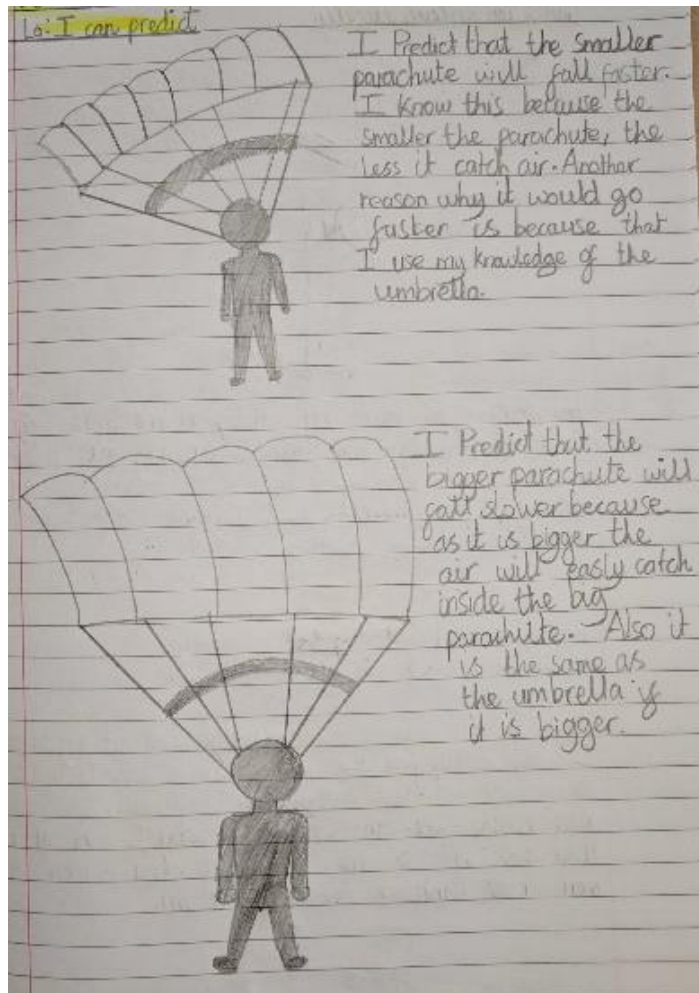 Lo: I can predict
I Predict that the smaller
parachute will fall faster.
I know this because the
smaller the parachute, the
less it catch air. Another
reason why it would go
faster is because that
I use my knowledge of the
umbrella.
I Predict that the
bigger parachute will
fall slower because
as it is bigger the
air will easly catch
inside the big
parachute. Also it
is the same as
the umbrella if
it is bigger.